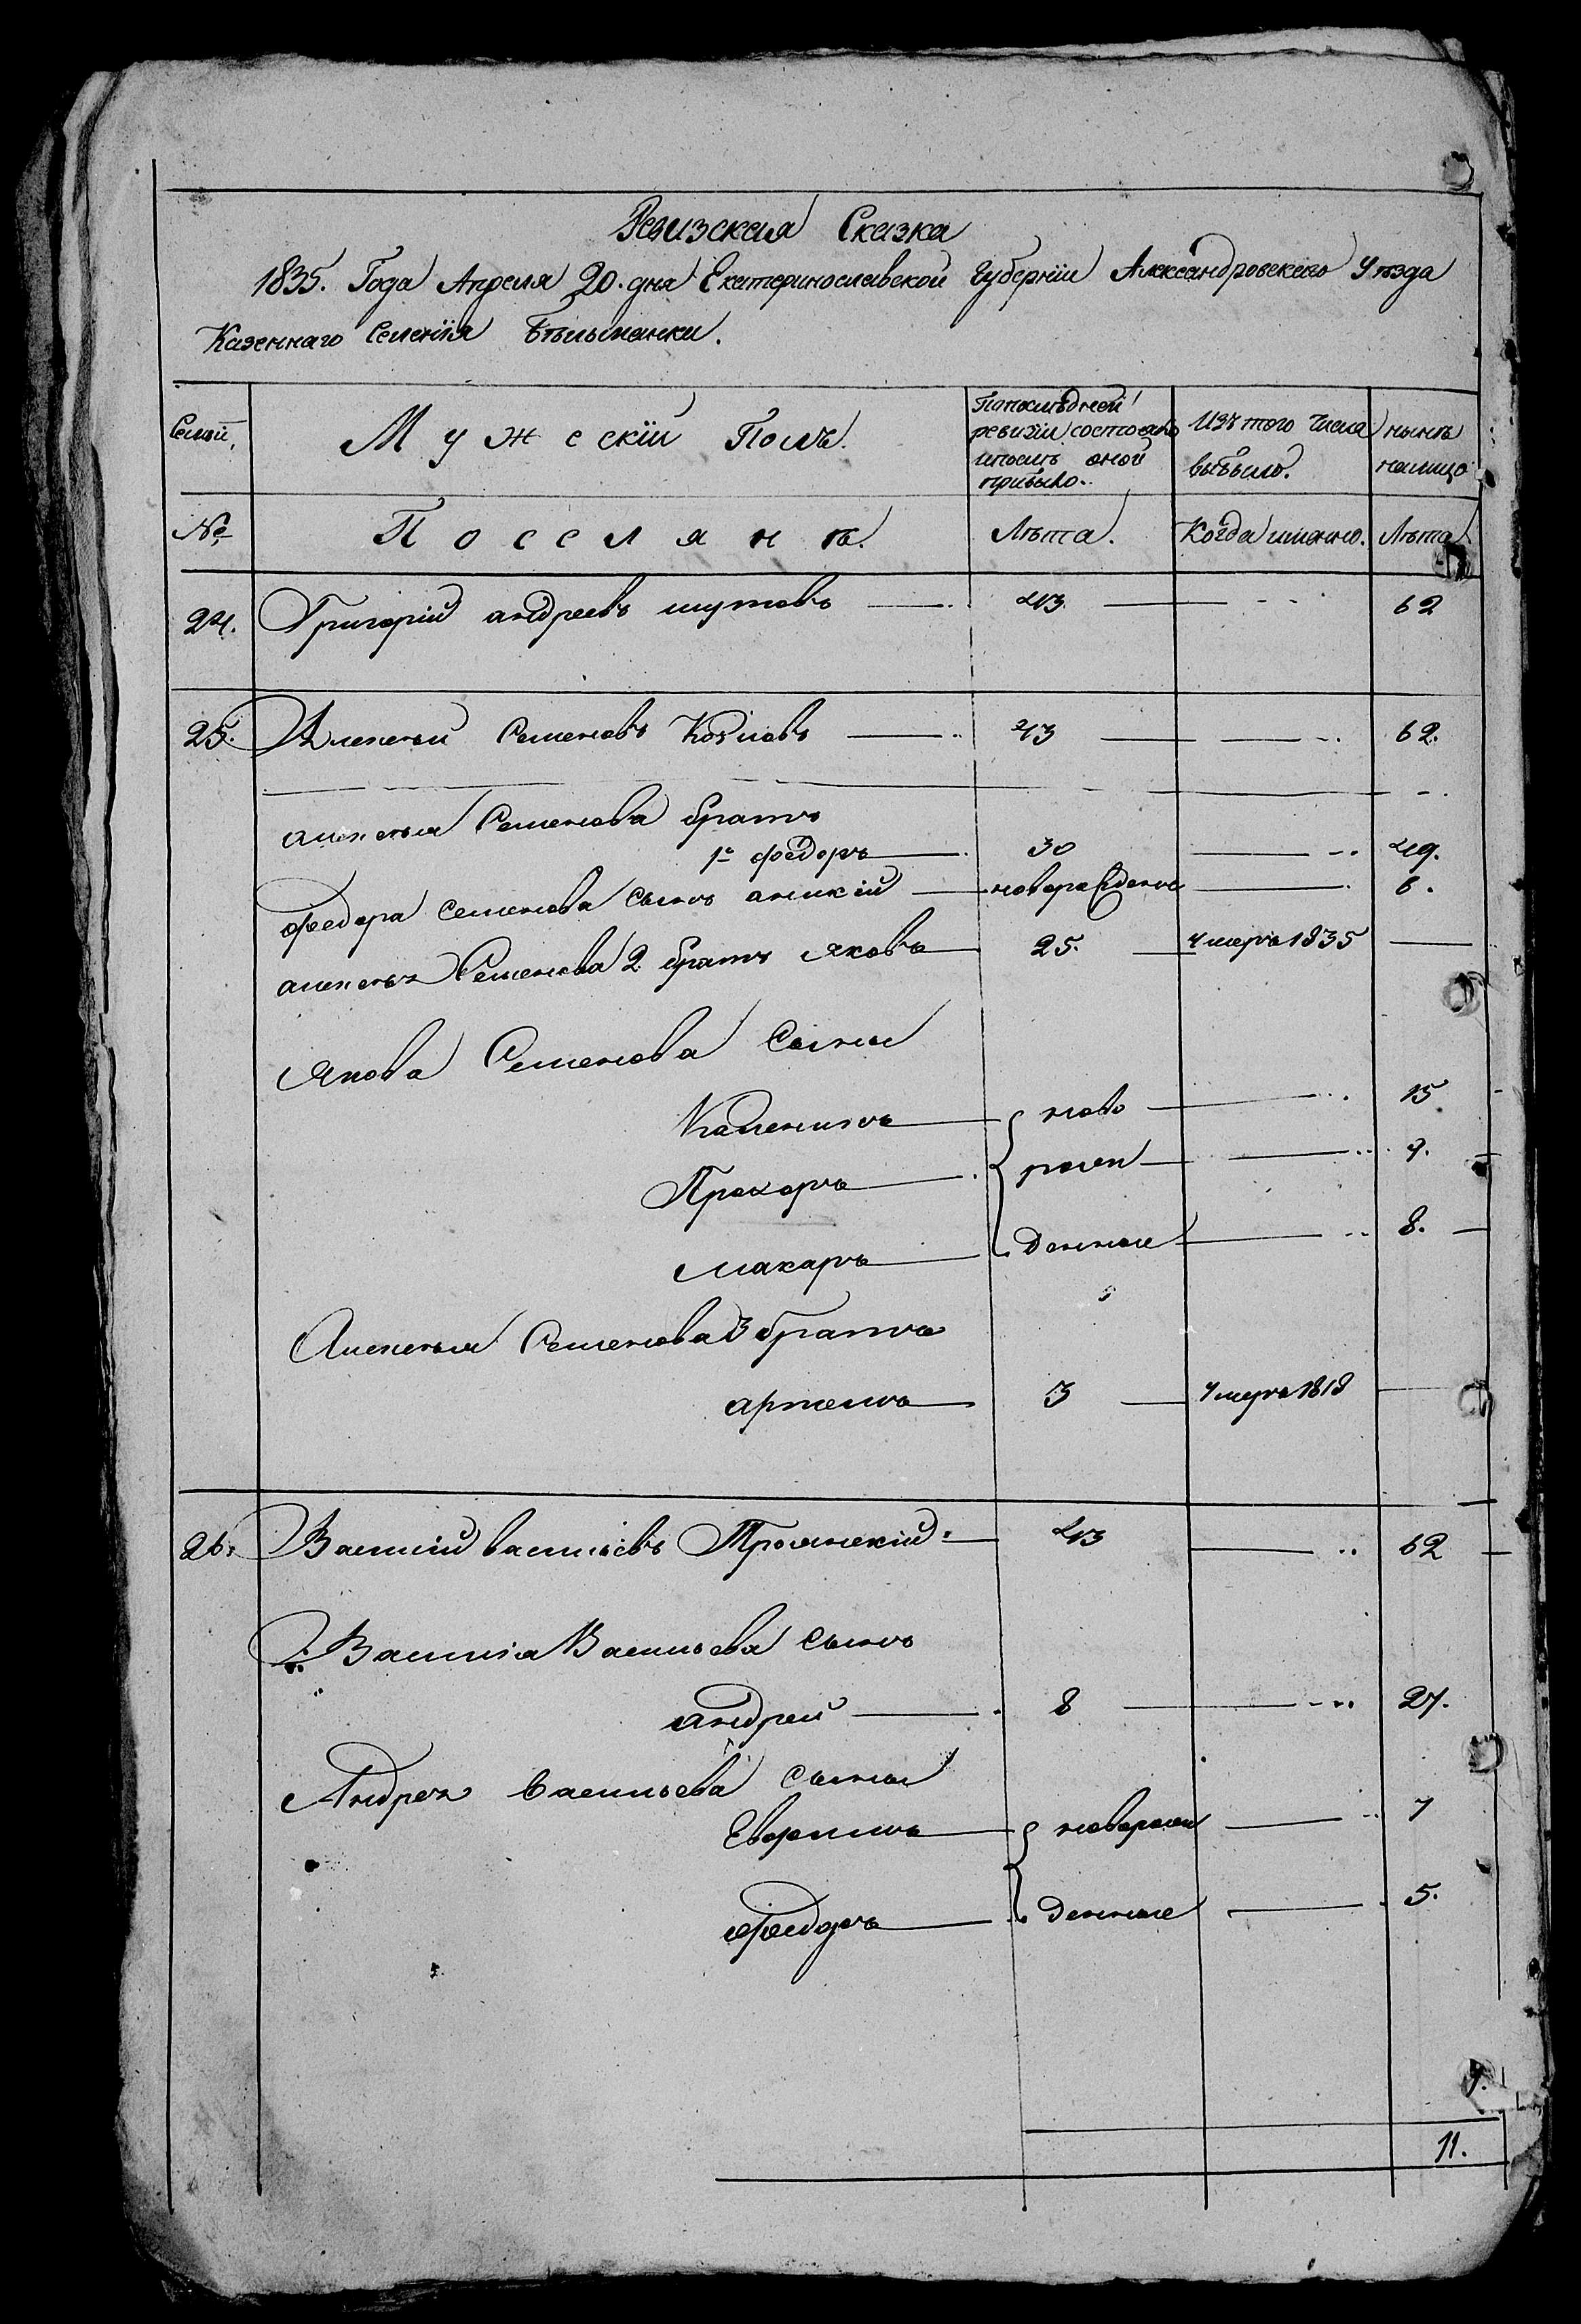 Ревизская Сказка
1835. Года Апреля 20. дня Екатеринославской Губернїи Александровскаго Уѣзда
Казеннаго Селенїя Бѣльманки.
Семей, Мужескїй Полъ. Попослѣдней ревизїи состояло ипослѣ оной прибыло. Изъ того числа выбыло. нынѣ налицо
№ Поселянъ. Лѣта. Когда имянно. Лѣта
24. Григорїй андреевъ шутовъ 43. 62
25. Алексѣй Семеновъ Козловъ 43 62.
алексѣя Семенова братъ
1й федоръ 30 49.
федора Семенова сынъ аникїй новорожденъ 6.
алексѣя Семенова 2 братъ яковъ 25. умеръ 1835
якова Семенова сыны
Каленикъ ново 15
Прохоръ рож 9.
макаръ денные 8.
Алексѣя Семенова 3 братъ
артемъ 3 умеръ 1818
26. Василїй васильевъ Троянскїй 43 62
Василїя Васильева сынъ
андрей 8 27.
Андрея васильева сыны
Евфимъ новорож 7
федоръ денные 5.
11.